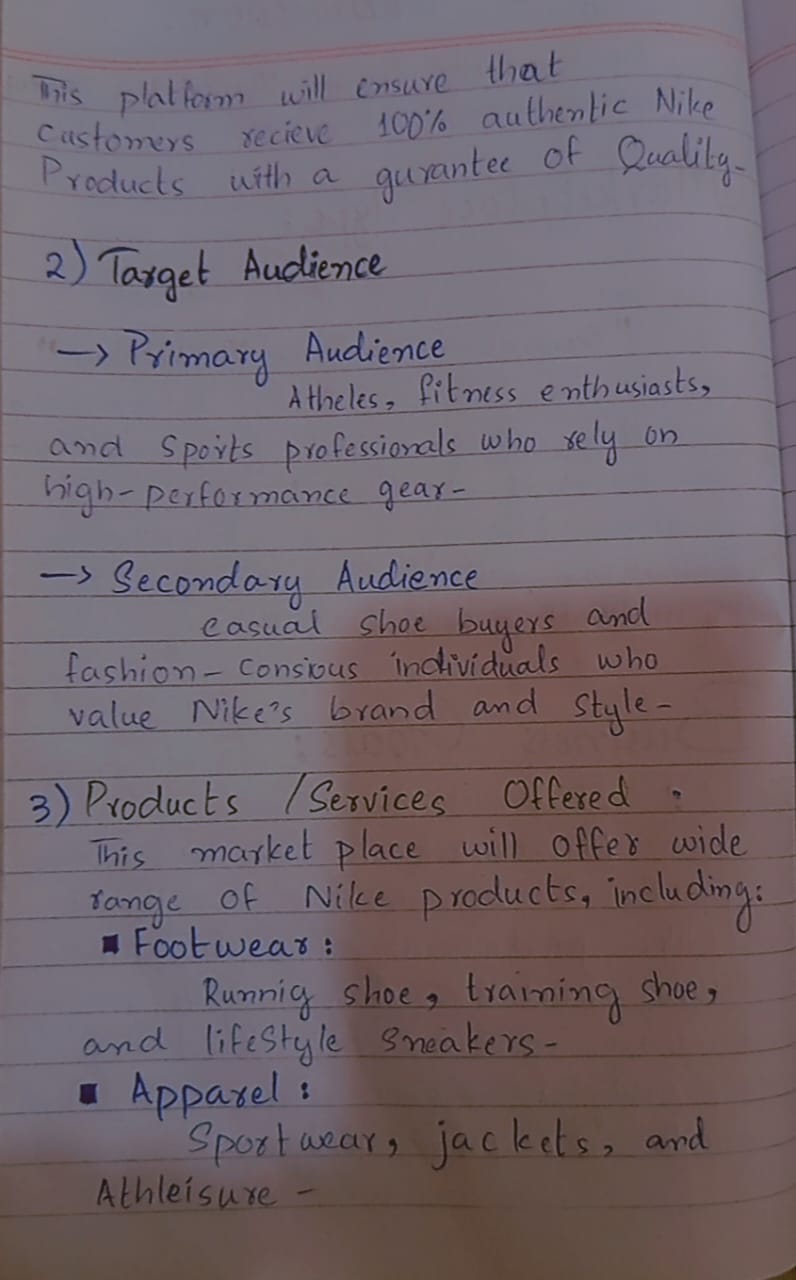 This platform will ensure that
Customers recieve 100% authentic Nike
Products with a gurantee of Quality-
2) Target Audience
→ Primary Audience
Atheles, fitness enthusiasts,
and Sports professionals who rely on
high-performance gear-
→ Secondary Audience
casual shoe buyers and
fashion-consious individuals who
value Nike's brand and style-
3) Products /Services Offered :
This market place will offer wide
range of Nike products, including:
▪ Footwear :
Runnig shoe, training shoe,
and lifestyle sneakers-
▪ Apparel :
Sportwear, jackets, and
Athleisure -